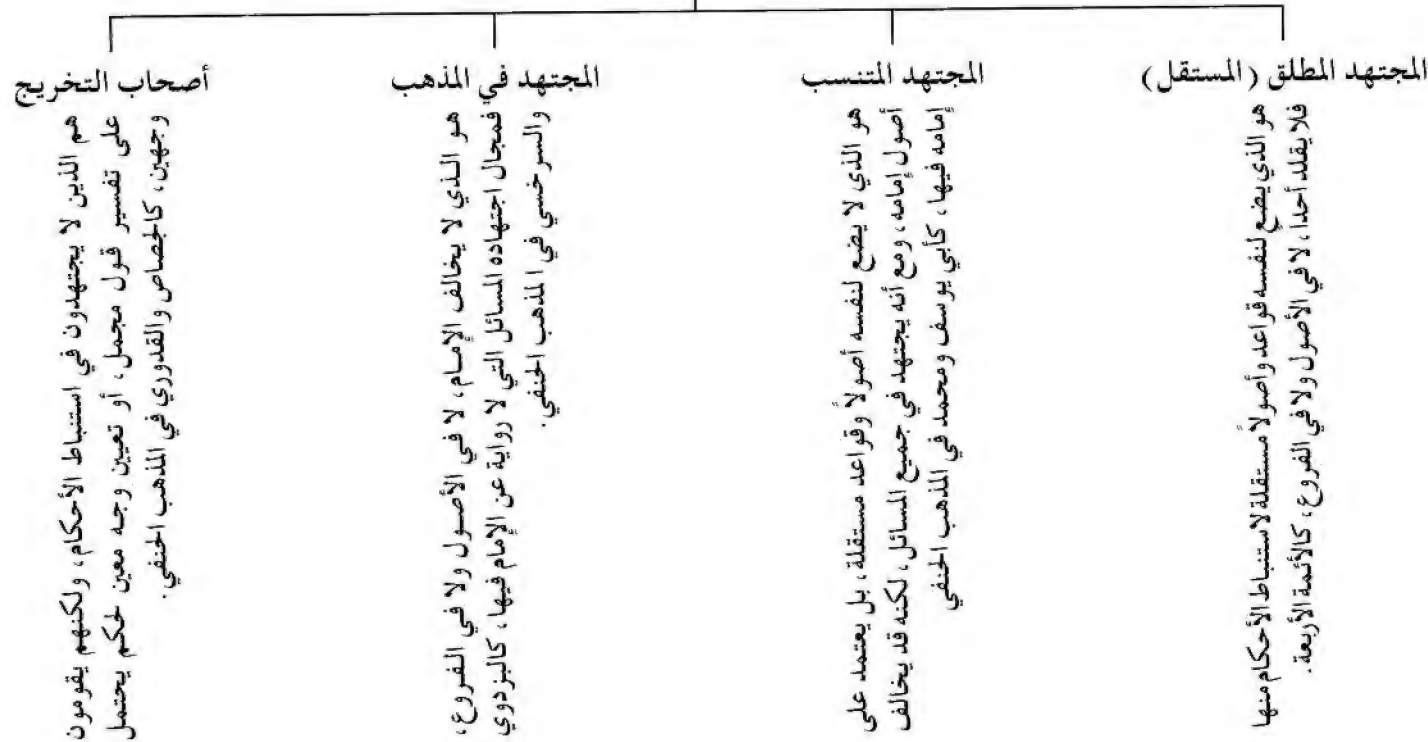 المجتهد المطلق (المستقل)
هو الذي يضع لنفسه قواعد وأصولاً مستقلة لاستنباط الأحكام منها
فلا يقلد أحداً، لا في الأصول ولا في الفروع، كالأئمة الأربعة.
المجتهد المتنسب
هو الذي لا يضع لنفسه أصولاً وقواعد مستقلة، بل يعتمد على
أصول إمامه، ومع أنه يجتهد في جميع المسائل، لكنه قد يخالف
إمامه فيها، كأبي يوسف ومحمد في المذهب الحنفي
المجتهد في المذهب
هو الذي لا يخالف الإمام، لا في الأصول ولا في الفروع،
فمجال اجتهاده المسائل التي لا رواية عن الإمام فيها، كالبزدوي
والسرخسي في المذهب الحنفي.
أصحاب التخريج
هم الذين لا يجتهدون في استنباط الأحكام، ولكنهم يقومون
على تفسير قول مجمل، أو تعيين وجه معين لحكم يحتمل
وجهين، كالجصاص والقدوري في المذهب الحنفي.